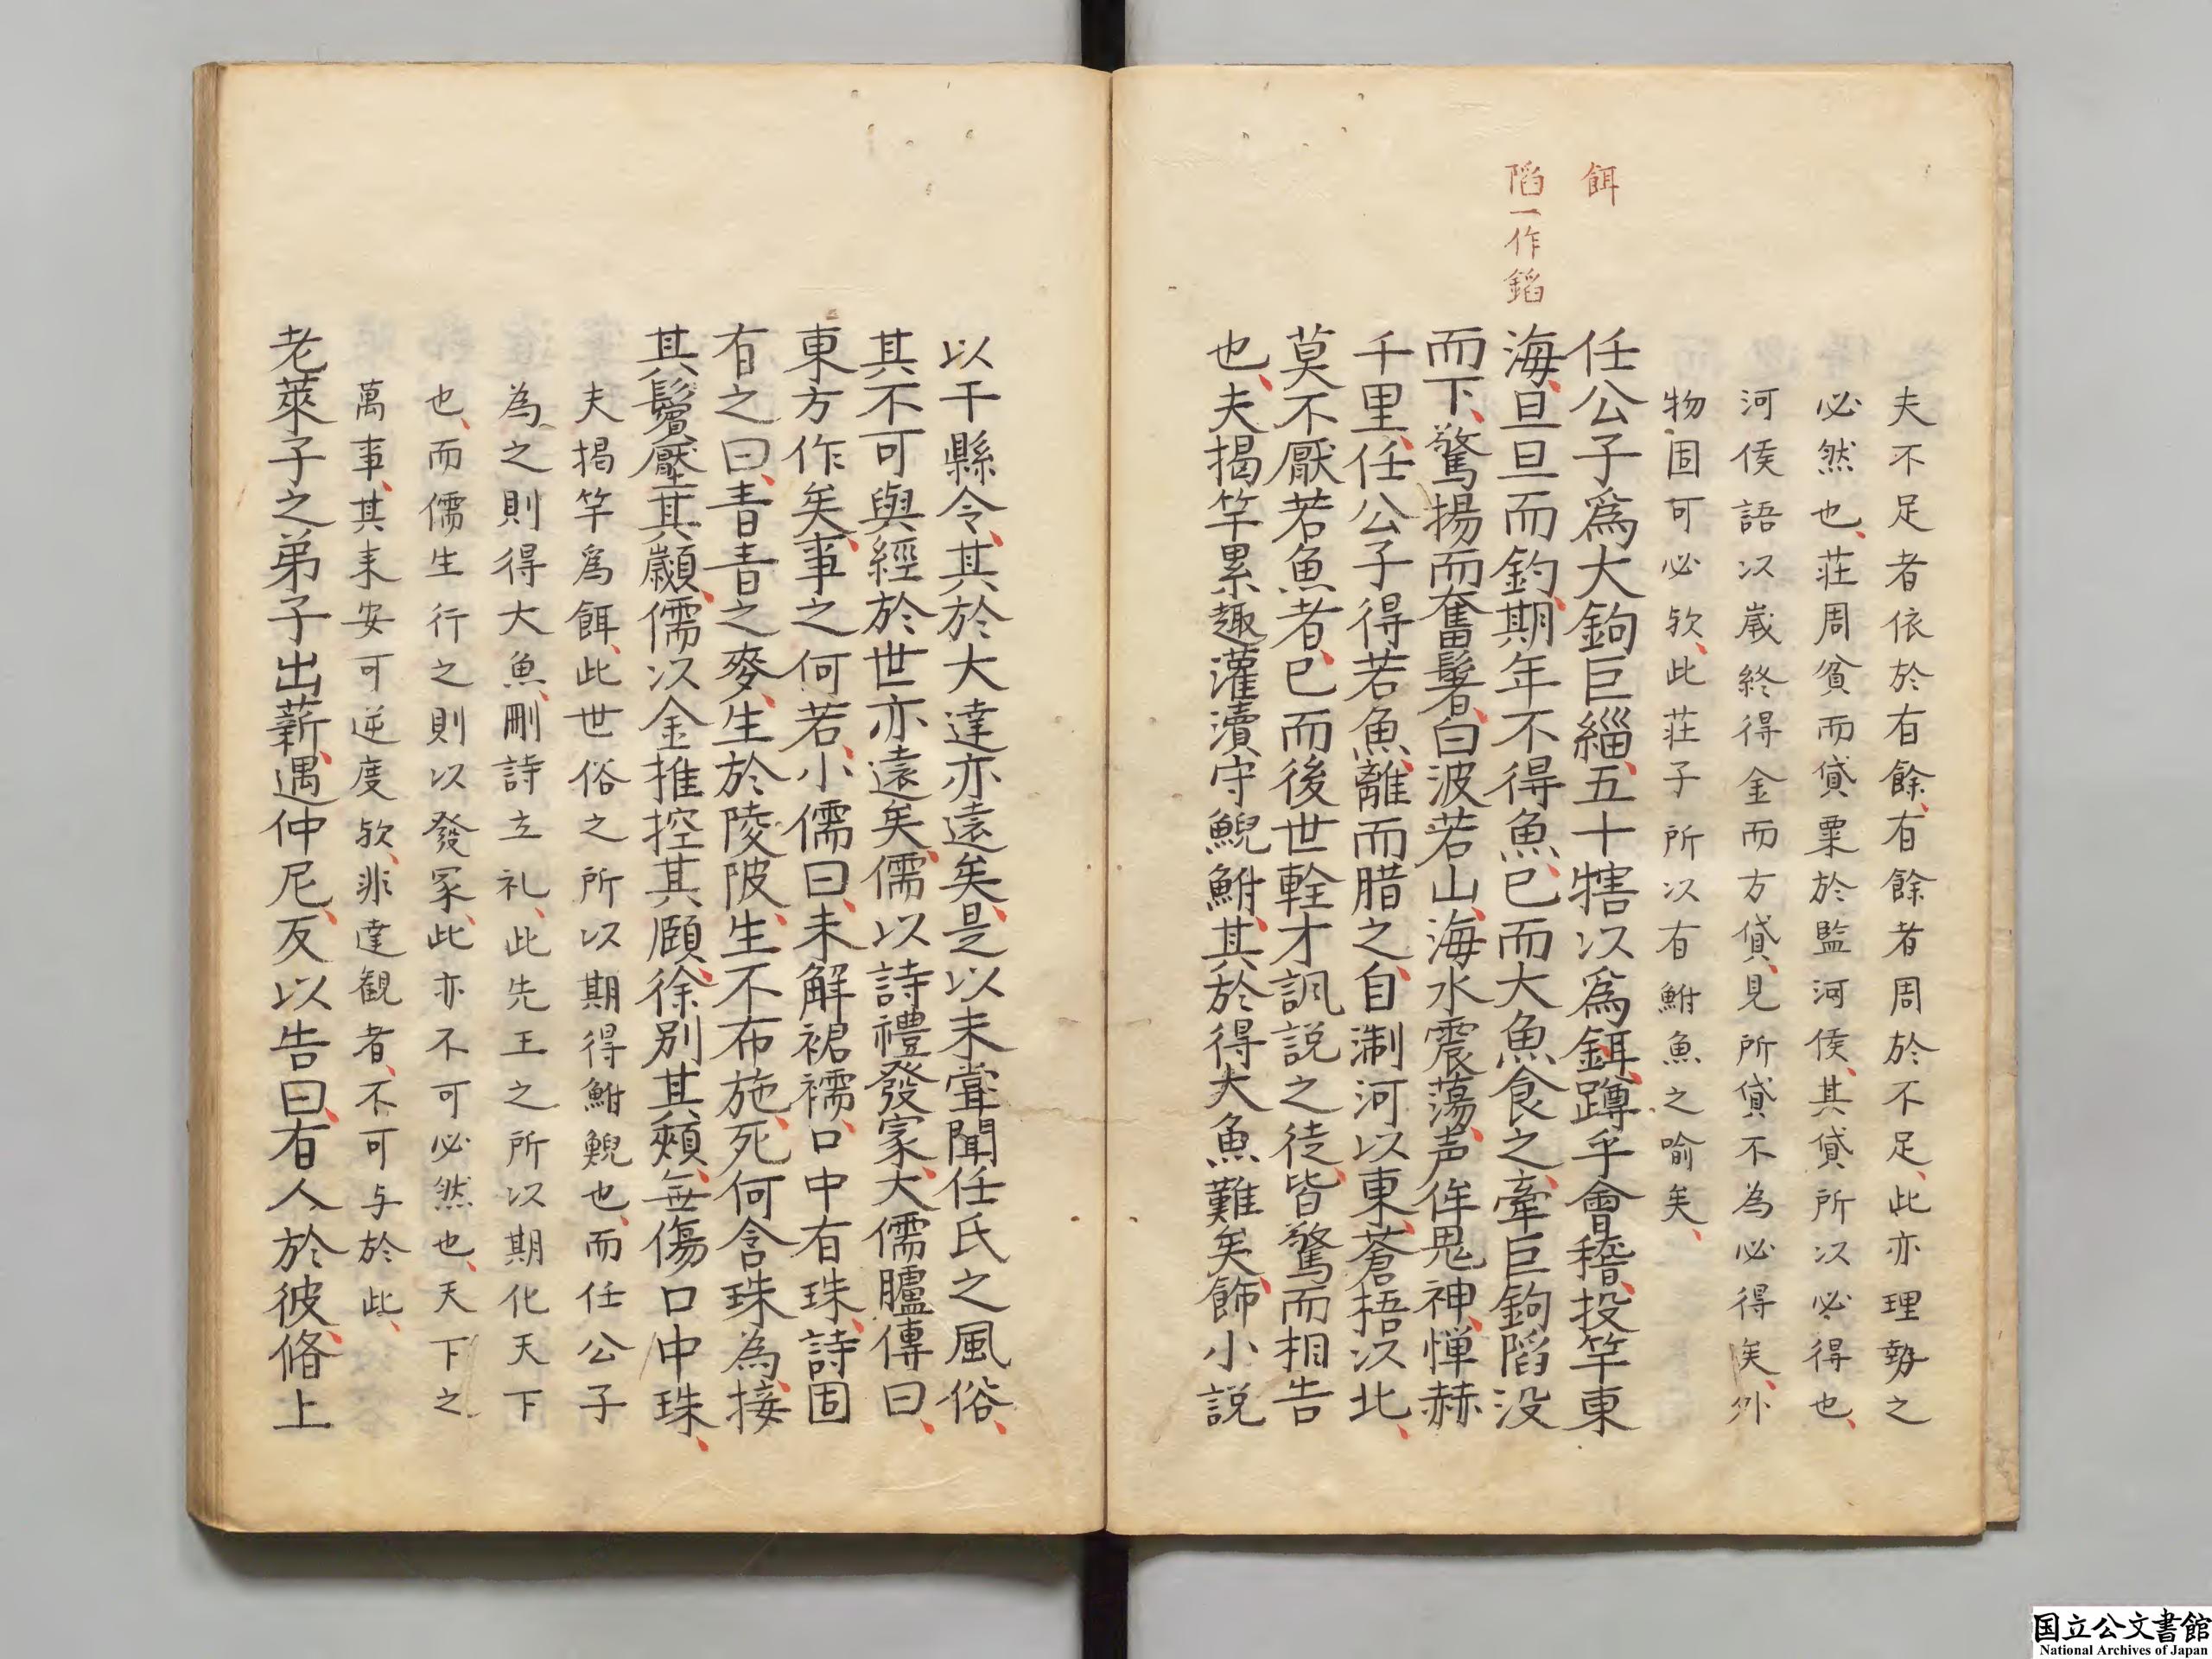 夫不足者依於有餘、有餘者周於不足、此亦理勢之
必然也、荘周貧而貸粟於監河侯、其貸所以必得也、
河侯語以嵗終得金而方貸、見所貸不為必得矣、外
物固可必欤、此荘子所以有鮒魚之喻矣、
餌
任公子爲大鉤巨緇、五十犗以爲鉺、蹲乎會稽、投竿東
陷一作錎
海、旦旦而釣、期年不得魚、已而大魚食之、牽巨鉤陷没
而下、驚揚而奮鬐、白波若山、海水震蕩、声侔鬼神、惮赫
千里、任公子得若魚、離而腊之、自淛河以東、蒼梧以北、
莫不厭若魚者、已而後世輇才諷説之徒、皆驚而相告
也、夫揭竿累趣灌瀆、守鯢鮒、其於得大魚難矣、飾小説
以干縣令、其於大達亦遠矣、是以未甞聞任氏之風俗、
其不可與經於世亦遠矣、儒以詩禮發冢、大儒臚傳曰、
東方作矣、事之何若、小儒曰、未解裙襦、口中有珠、詩固
有之曰、青青之麥、生於陵陂、生不布施、死何含珠為、接
其鬢、壓其顪、儒以金推控其頤、徐别其頰、無傷口中珠、
夫揭竿爲餌、此世俗之所以期得鮒鯢也、而任公子
為之則得大魚、刪詩立礼、此先王之所以期化天下
也、而儒生行之則以發冢、此亦不可必然也、天下之
萬事、其未安可逆度欤、非達観者、不可与於此、
老萊子之弟子出薪、遇仲尼、反以告曰、有人於彼、脩上
国立公文書館
National Archives of Japan